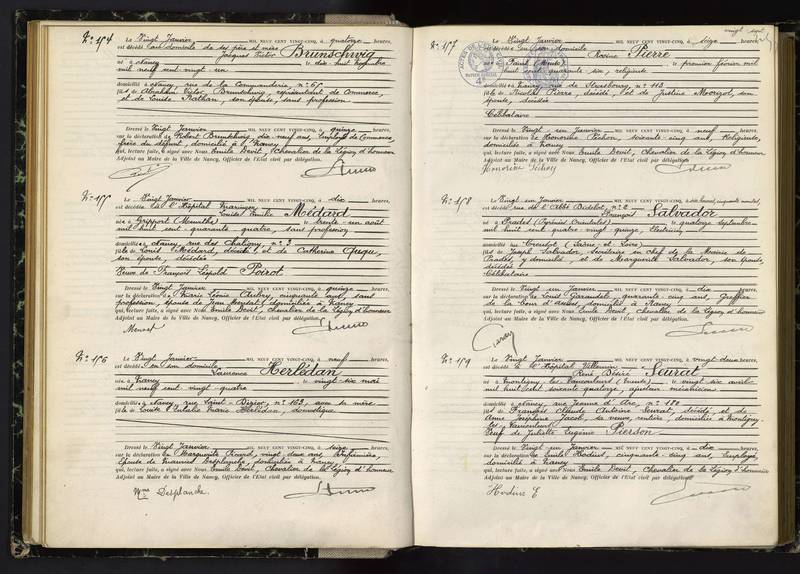 N° 154
Le Vingt Janvier MIL NEUF CENT VINGT-CINQ, à quatorze heures,
est décédé au domicile de ses père et mère
Jacques Victor Brunschwig
né à Nancy le dix huit Novembre
mil neuf cent vingt un
domicilié à Nancy, rue de la Commanderie, n° 65
fils de Abraham Victor Brunschwig, représentant de Commerce,
et de Louise Nathan, son épouse, sans profession
Dressé le Vingt Janvier MIL NEUF CENT VINGT-CINQ, à quinze heures,
sur la déclaration de Robert Brunschwig, dix-neuf ans, Employé de Commerce
frère du défunt, domicilié à Nancy
qui, lecture faite, a signé avec Nous Emile Devit, Chevalier de la Légion d'honneur
Adjoint au Maire de la Ville de Nancy, Officier de l'Etat civil par délégation.
N° 155
Le Vingt Janvier MIL NEUF CENT VINGT-CINQ, à dix heures,
est décédée à l'Hôpital Maringer
Louise Emilie Médard
née à Gripport (Meurthe) le trente-un août
mil huit cent quarante quatre, sans profession
domiciliée à Nancy, rue des Chaligny, n° 3
fille de Louis Médard, décédé, et de Catherine
son épouse, décédée
Veuve de François Léopold Poirot
Dressé le Vingt Janvier MIL NEUF CENT VINGT-CINQ, à quinze heures,
sur la déclaration de Marie Léonie Aubry, cinquante ans, sans
profession, épouse de Jean domiciliée à Nancy
qui, lecture faite, a signé avec Nous Emile Devit, Chevalier de la Légion d'honneur
Adjoint au Maire de la Ville de Nancy, Officier de l'Etat civil par délégation.
N° 156
Le Vingt Janvier MIL NEUF CENT VINGT-CINQ, à neuf heures,
est décédée en son domicile
Laurence Herlédan
née à Nancy le vingt-six mai
mil neuf cent vingt-quatre
domiciliée à Nancy, rue Saint-Dizier, n° 162, avec sa mère
fille de Louise Eulalie Marie Herlédan, domestique
Dressé le Vingt Janvier MIL NEUF CENT VINGT-CINQ, à seize heures,
sur la déclaration de Marguerite vingt-deux ans, Infirmière,
épouse de Desplanche, domiciliée à Nancy
qui, lecture faite, a signé avec Nous Emile Devit, Chevalier de la Légion d'honneur
Adjoint au Maire de la Ville de Nancy, Officier de l'Etat civil par délégation.
Mme Desplanche
vingt sept
N° 157
Le Vingt Janvier MIL NEUF CENT VINGT-CINQ, à seize heures,
est décédée en son domicile
Pierre
le premier février mil
huit cent quarante six, religieuse
domiciliée à Nancy, rue de Strasbourg, n° 113
fille de Nicolas Pierre, décédé, et de Justine son
épouse, décédée
Célibataire
Dressé le Vingt-un Janvier MIL NEUF CENT VINGT-CINQ, à neuf heures,
sur la déclaration de Honorine soixante-cinq ans, Religieuse,
domiciliée à Nancy
qui, lecture faite, a signé avec Nous Emile Devit, Chevalier de la Légion d'honneur
Adjoint au Maire de la Ville de Nancy, Officier de l'Etat civil par délégation.
N° 158
Le Vingt un Janvier MIL NEUF CENT VINGT-CINQ, à
est décédé rue de l'Abbé Didelot, n° 2
François Salvador
né à Prades (Pyrénées Orientales) le quatorze septembre
mil huit cent quatre-vingt-quinze, Electricien
domicilié au Creusot (Saône-et-Loire)
fils de Joseph Salvador, Secrétaire en chef de la Mairie de
Prades, y domicilié, et de Marguerite Salvador, son épouse,
décédée
Célibataire
Dressé le Vingt un Janvier MIL NEUF CENT VINGT-CINQ, à dix heures,
sur la déclaration de Louis quarante-cinq ans, Greffier
domicilié à Nancy
qui, lecture faite, a signé avec Nous Emile Devit, Chevalier de la Légion d'honneur
Adjoint au Maire de la Ville de Nancy, Officier de l'Etat civil par délégation.
N° 159
Le Vingt Janvier MIL NEUF CENT VINGT-CINQ, à vingt-deux heures,
est décédé à l'Hôpital Villemin
René Désiré Seurat
né à Montigny-les-Vaucouleurs (Meuse) le vingt six avril
mil huit cent soixante quatorze, ajusteur mécanicien
domicilié à Nancy, rue Jeanne d'Arc, n° 120
fils de François Claude Antoine Seurat, décédé, et de
Anne Joséphine Jacob, sa veuve, rentière, domiciliée à Montigny-
les-Vaucouleurs
Veuf de Juliette Eugénie Pierson
Dressé le Vingt un Janvier MIL NEUF CENT VINGT-CINQ, à dix heures,
sur la déclaration de Emile Hodier, cinquante-cinq ans, Employé,
domicilié à Nancy
qui, lecture faite, a signé avec Nous Emile Devit, Chevalier de la Légion d'honneur
Adjoint au Maire de la Ville de Nancy, Officier de l'Etat civil par délégation.